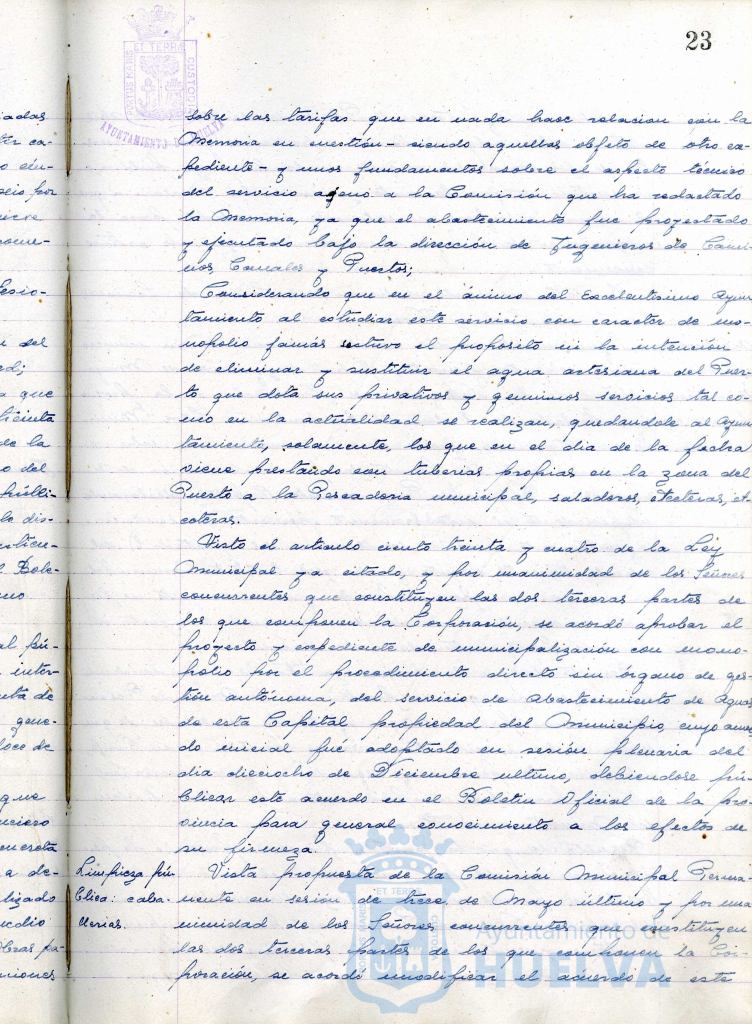 23
PORTUS MARIS ET TERRAE CUSTODIA
AYUNTAMIENTO HUELVA
sobre las tarifas que en nada hace relacion con la
Memoria en cuestión - siendo aquellas objeto de otro ex-
pediente - y unos fundamentos sobre el aspecto técnico
del servicio ageno a la Comisión que ha redactado
la Memoria, ya que el abastecimiento fue proyectado
y ejecutado bajo la dirección de Ingenieros de Cami-
nos, Canales y Puertos;
Considerando que en el ánimo del Excelentísimo Ayun
tamiento al estudiar este servicio con caracter de mo-
nopolio jamás estuvo el proposito ni la intención
de eliminar y sustituir el agua artesiana del Puer-
to que dota sus privativos y genuinos servicios tal co-
mo en la actualidad se realizan, quedandole al Ayun
tamiento, solamente, los que en el dia de la fecha
viene prestando con tuberias propias en la zona del
Puerto a la Pescaderia municipal, saladeros, etceteras, et-
ceteras.
Visto el articulo ciento treinta y cuatro de la Ley
Municipal ya citado, y por unanimidad de los Señores
concurrentes que constituyen las dos terceras partes de
los que componen la Corporación, se acordó aprobar el
proyecto y expediente de municipalización con mono-
polio por el procedimiento directo sin órgano de ges-
tión autónoma, del servicio de Abastecimiento de Aguas
de esta Capital propiedad del Municipio, cuyo acuer
do inicial fué adoptado en sesión plenaria del
dia dieciocho de Diciembre ultimo, debiendose pu-
blicar este acuerdo en el Boletin Oficial de la pro
vincia para general conocimiento a los efectos de
su firmeza.
Limpieza pú-
blica: caba-
llerias.
Vista propuesta de la Comisión Municipal Perma-
nente en sesión de trece de Mayo último y por una
nimidad de los Señores concurrentes que constituyen
las dos terceras partes de los que componen la Cor-
poración, se acordó modificar el acuerdo de este
Ayuntamiento de
HUELVA